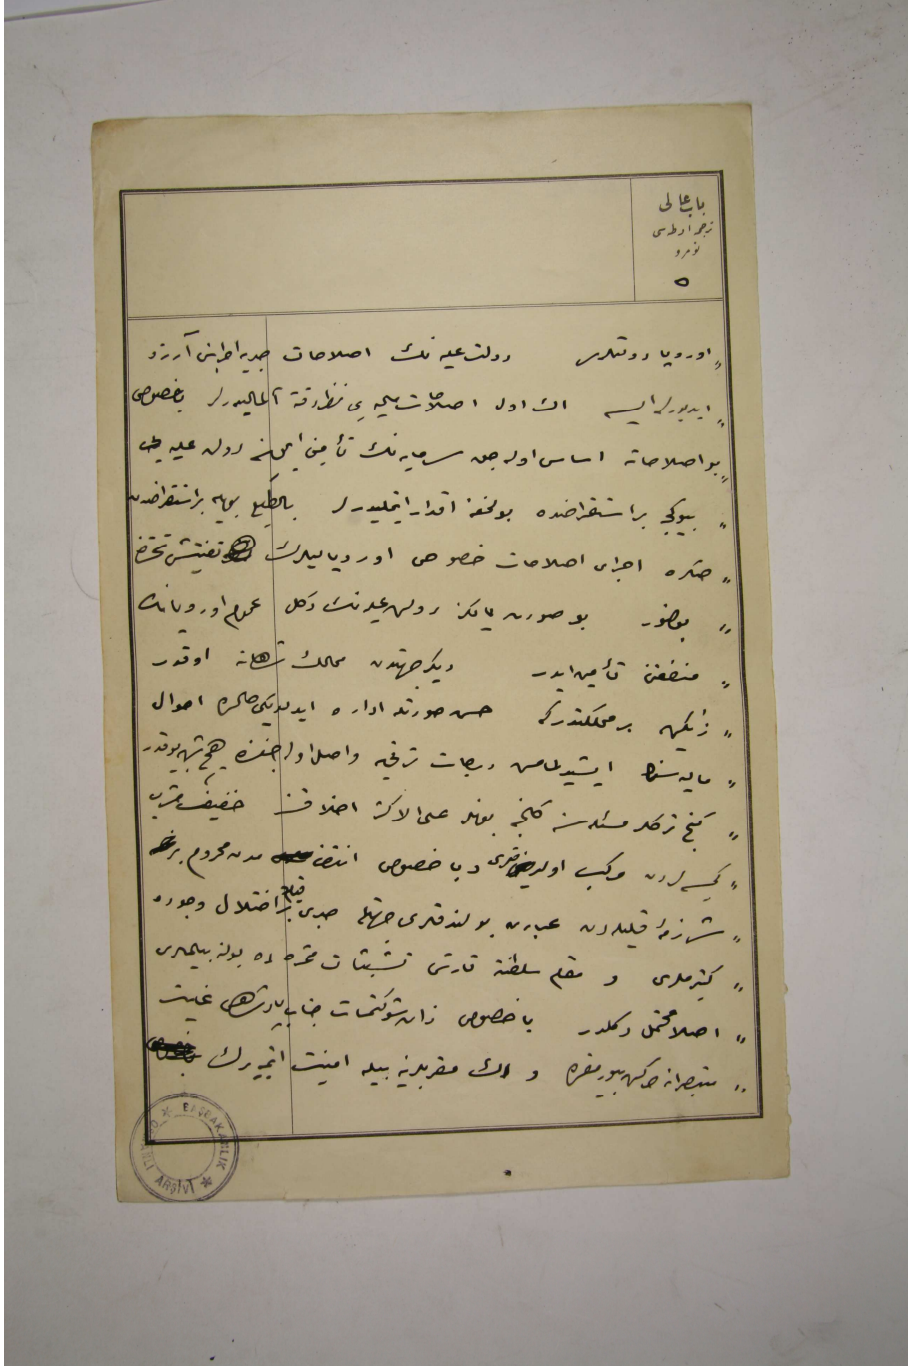 باب عالی
ترجمه اوطه‌سی
نومرو
٥
„ اوروپا دولتلری دولت علیه نك اصلاحات جدیه اجراسنی آرزو
„ ایدیورلر ایسه اك اول اصلاحات مالیه یی نظر دقته آلمالیدرلر باخصوص
„ بو اصلاحاته اساس اوله جق سرمایه نك تأمینی ایچون دولت علیه
„ بیوكجه بر استقراضده بولنمغه اقدار ایتملیدرلر بالطبع بویله بر استقراضدن
„ صكره اجرای اصلاحات خصوصی اوروپالیلرك تفتیش تحتنه
„ بو صورت یالكز دولت علیه نك دكل عموم اوروپانك
„ منفعتنی تأمین ایدر دیكر جهتدن ممالك شاهانه اوقدر
„ زنكین بر مملكتدركه حسن صورتله اداره ایدلدیكی حالده احوال
„ مالیه سنك ایشیدلمامش درجات ترقیه واصل اوله جغنده هیچ شبهه یوقدر
„ كنج تركلر مسئله سنه كلنجه بونلر علی الاكثر اخلاقسز خفیف مشرب
„ كیمسه لردن مركب اولدقلری و باخصوص مدن محروم بر
„ شرذمهٔ قلیله دن عبارت بولندقلری جهتله جدی بر اختلال وجوده
„ كتیرملری و مقام سلطنته قارشی تشبثات ده بولنه بیلملری
„ اصلا محتمل دكلدر باخصوص ذات شوكتسمات جناب پادشاهی غایت
„ متبصرانه حركت بیورمقده و اك مقربلرینه بیله امنیت ایتمیه رك
BAŞBAKANLIK
ARŞİVİ